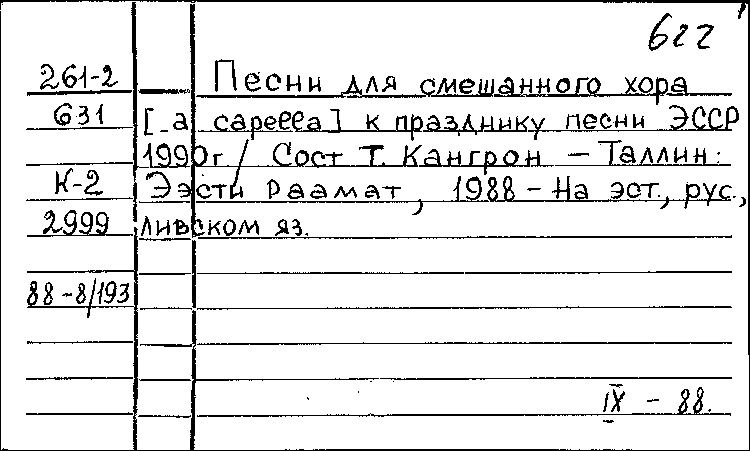 622
261-2 Песни для смешанного хора
631 [a capella] к празднику песни ЭССР
1990г / Сост Т. Кангрон - Таллин:
К-2 Ээсти Раамат, 1988 - На эст., рус.,
2999 ливском яз.
88-8/193
IX - 88.